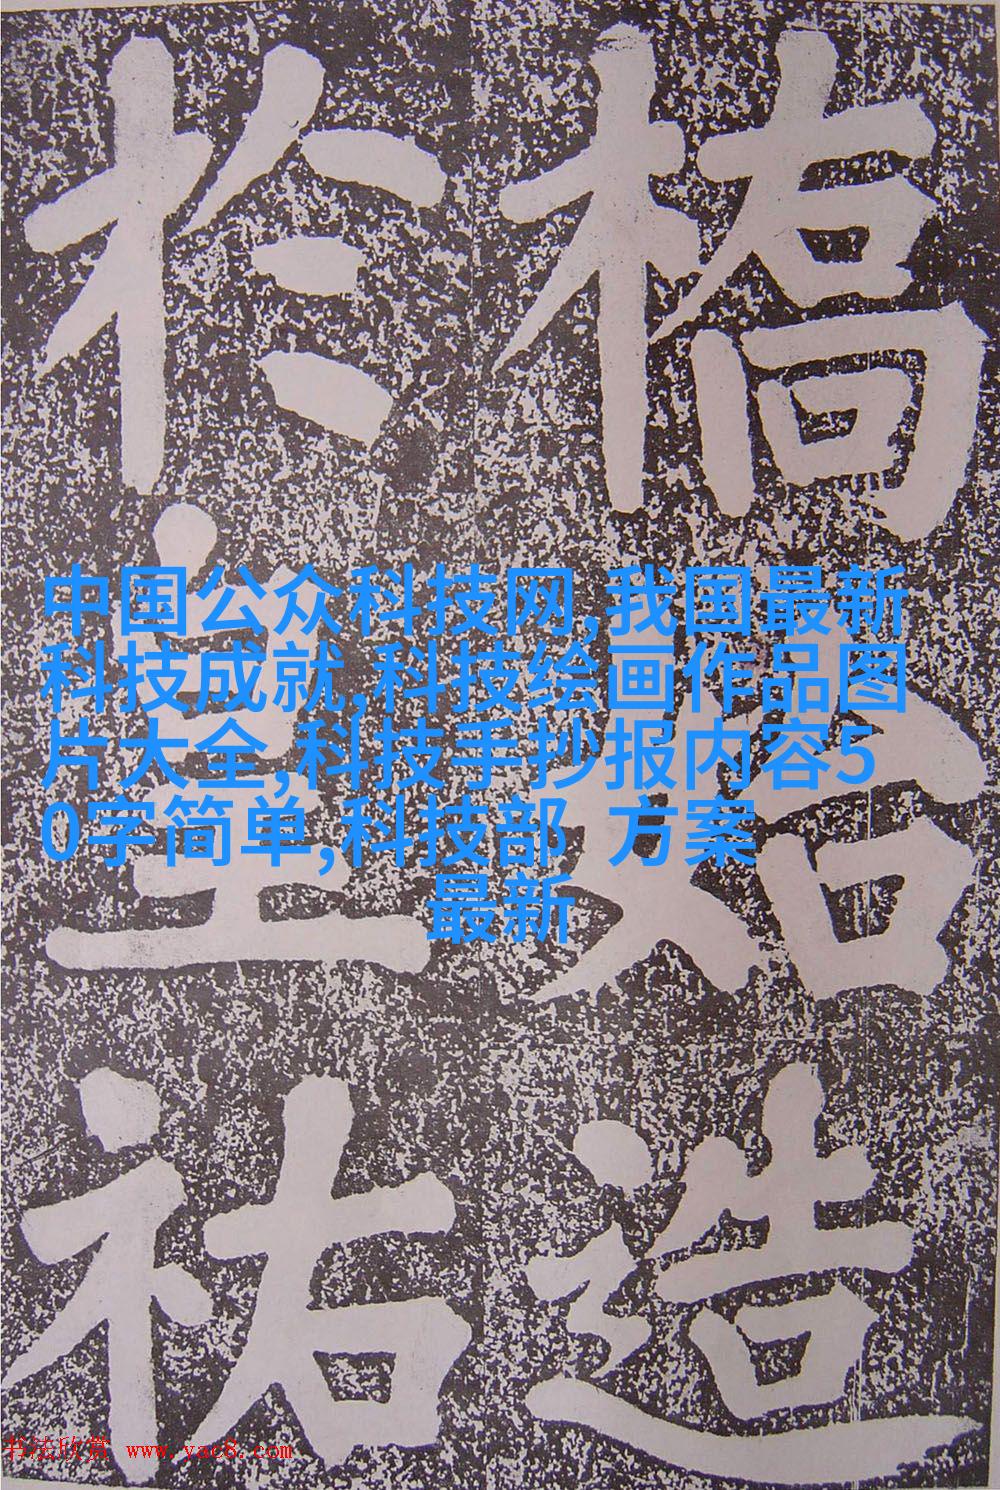 橋始造
於皇祐
中国公众科技网,我国最新
科技成就,科技绘画作品图
片大全,科技手抄报内容5
0字简单,科技部 方案
最新
书法欣赏 www.yac8.com